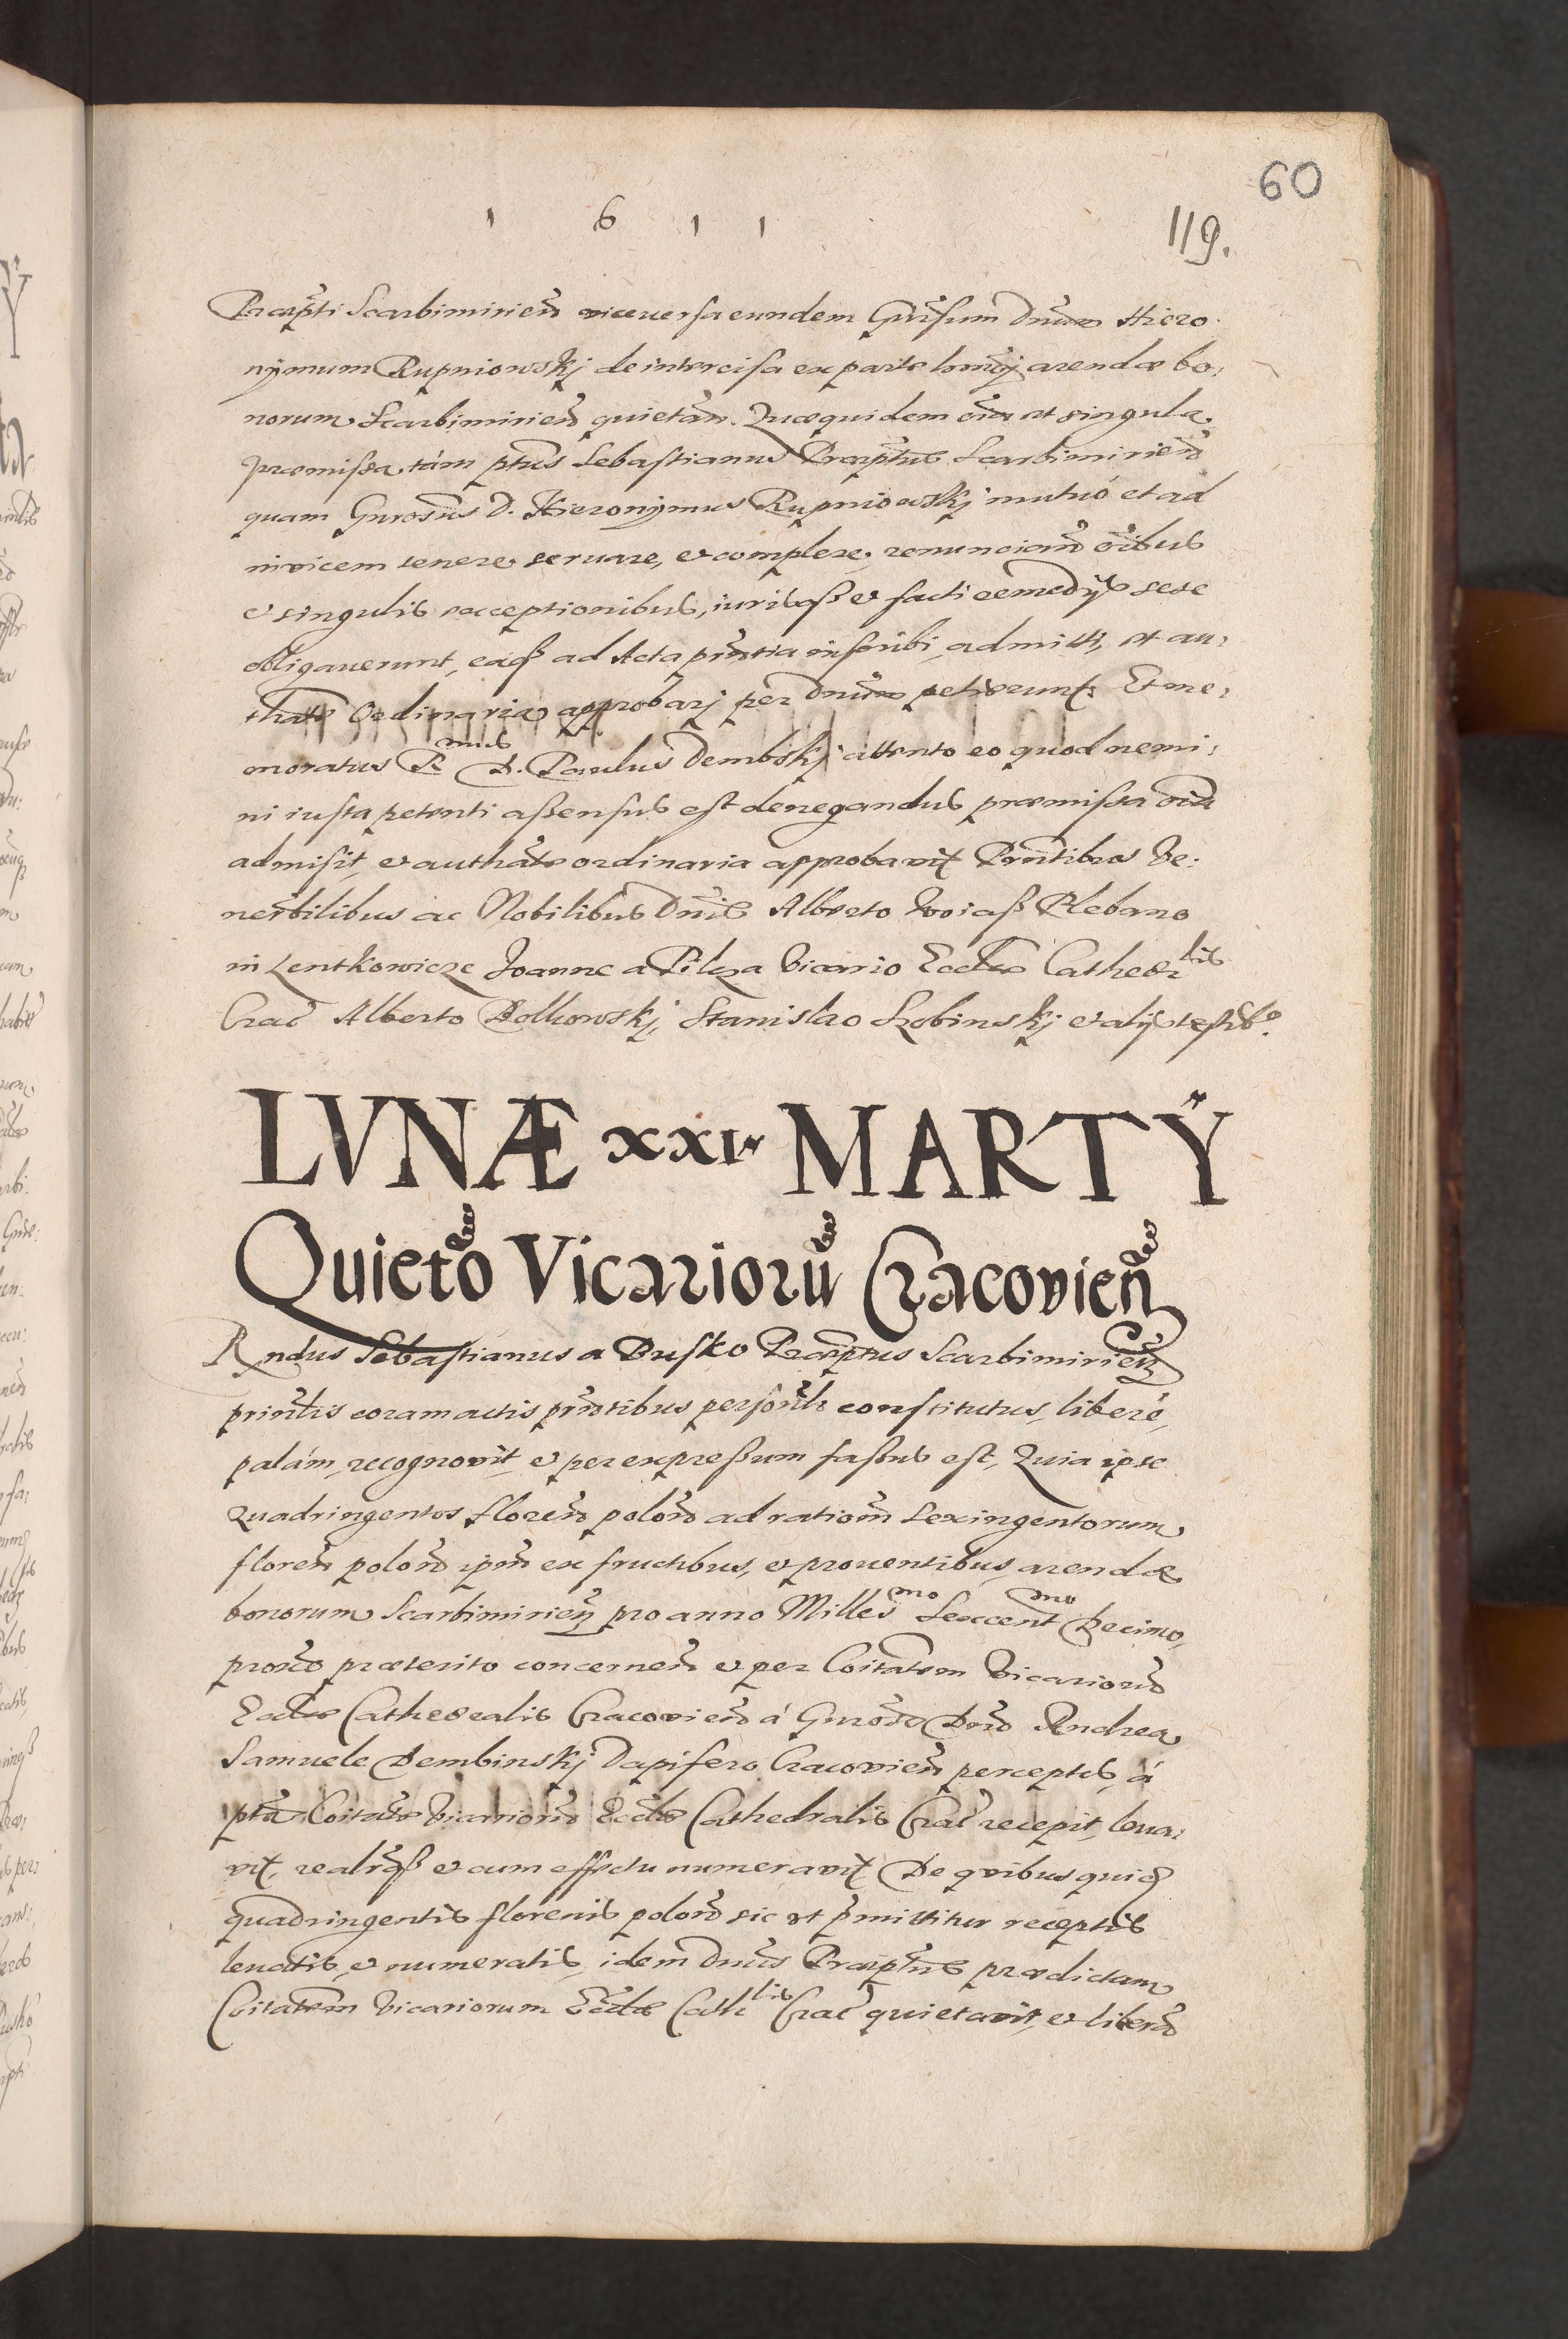 60
1 6 1 1
119.
Præpti Scarbimirien̄ viceversa eundem Gn̄rosum Dn̄um Hiero
nymum Rupniowskj de intercisa ex parte arendæ bo:
norum Scarbimirien̄ quietan̄. Quæquidem oīa et singula
præmissa, tám ptus Sebastianus Præptus Scarbimirien̄
quam Gnrosus D. Hieronymus Rupniowskj mutuó et ad
invicem tenere servare, et complere, renuncian̄ oībus
et singulis exceptionibus, iurisqꝫ et facti remedijs sese
obligaverunt, eaqꝫ ad Acta prn̄tia inscribi, admitti, et au:
thate Ordinaria approbarj per Dnum petierunt. Et me:
moratus R mus D. Paulus Dembskj attento eo quod nemi:
ni iusta petenti assensus est denegandus præmissa oīa
admisit, et authate ordinaria approbavit Prn̄tibus Ve:
nerbilibus ac Nobilibus Dnis Alberto Plebano
in Lentkowicze Joanne a Pilcza Vicario Ecclæ Cathedr lis
Crac̄ Alberto Stanislao et alijs testib9.
LVNÆ XXI MARTŸ
Quieto Vicarioru Cracovien
Rndus Sebastianus a Busko Præptus Scarbimirien̄
prin̄lis coram actis prn̄tibus personlr constitutus, liberé,
palám, recognovit, et per expressum fassus est, Quia ipse
Quadringentos floren̄ polon̄ ad ration̄ Sexingentorum
floren̄ polon̄ ipm̄ ex fructibus, et proventibus, arendæ
bonorum Scarbimirien̄ pro anno Milles mo Sexcent mo Decimo,
proxo præterito concernen̄ et per Coitatem Vicarior̄
Ecclæ Cathedralis Cracovien̄ á Gnroso Dno Andrea
Samuele Dembinskj Dapifero Cracovien̄ perceptis, á
pta Coitate Vicarior̄ Ecclæ Cathedralis Crac̄ recepit, leva:
vit, realrqꝫ et cum effectu numeravit De quibus quiđ
quadringentis florenis polon̄ sic ut p̄mittitur receptis
levatis, et numeratis, idem Dnus Præptus prædictam
Coitatem Vicariorum Ecclæ Cath lis Crac̄ quietavit, et liberū